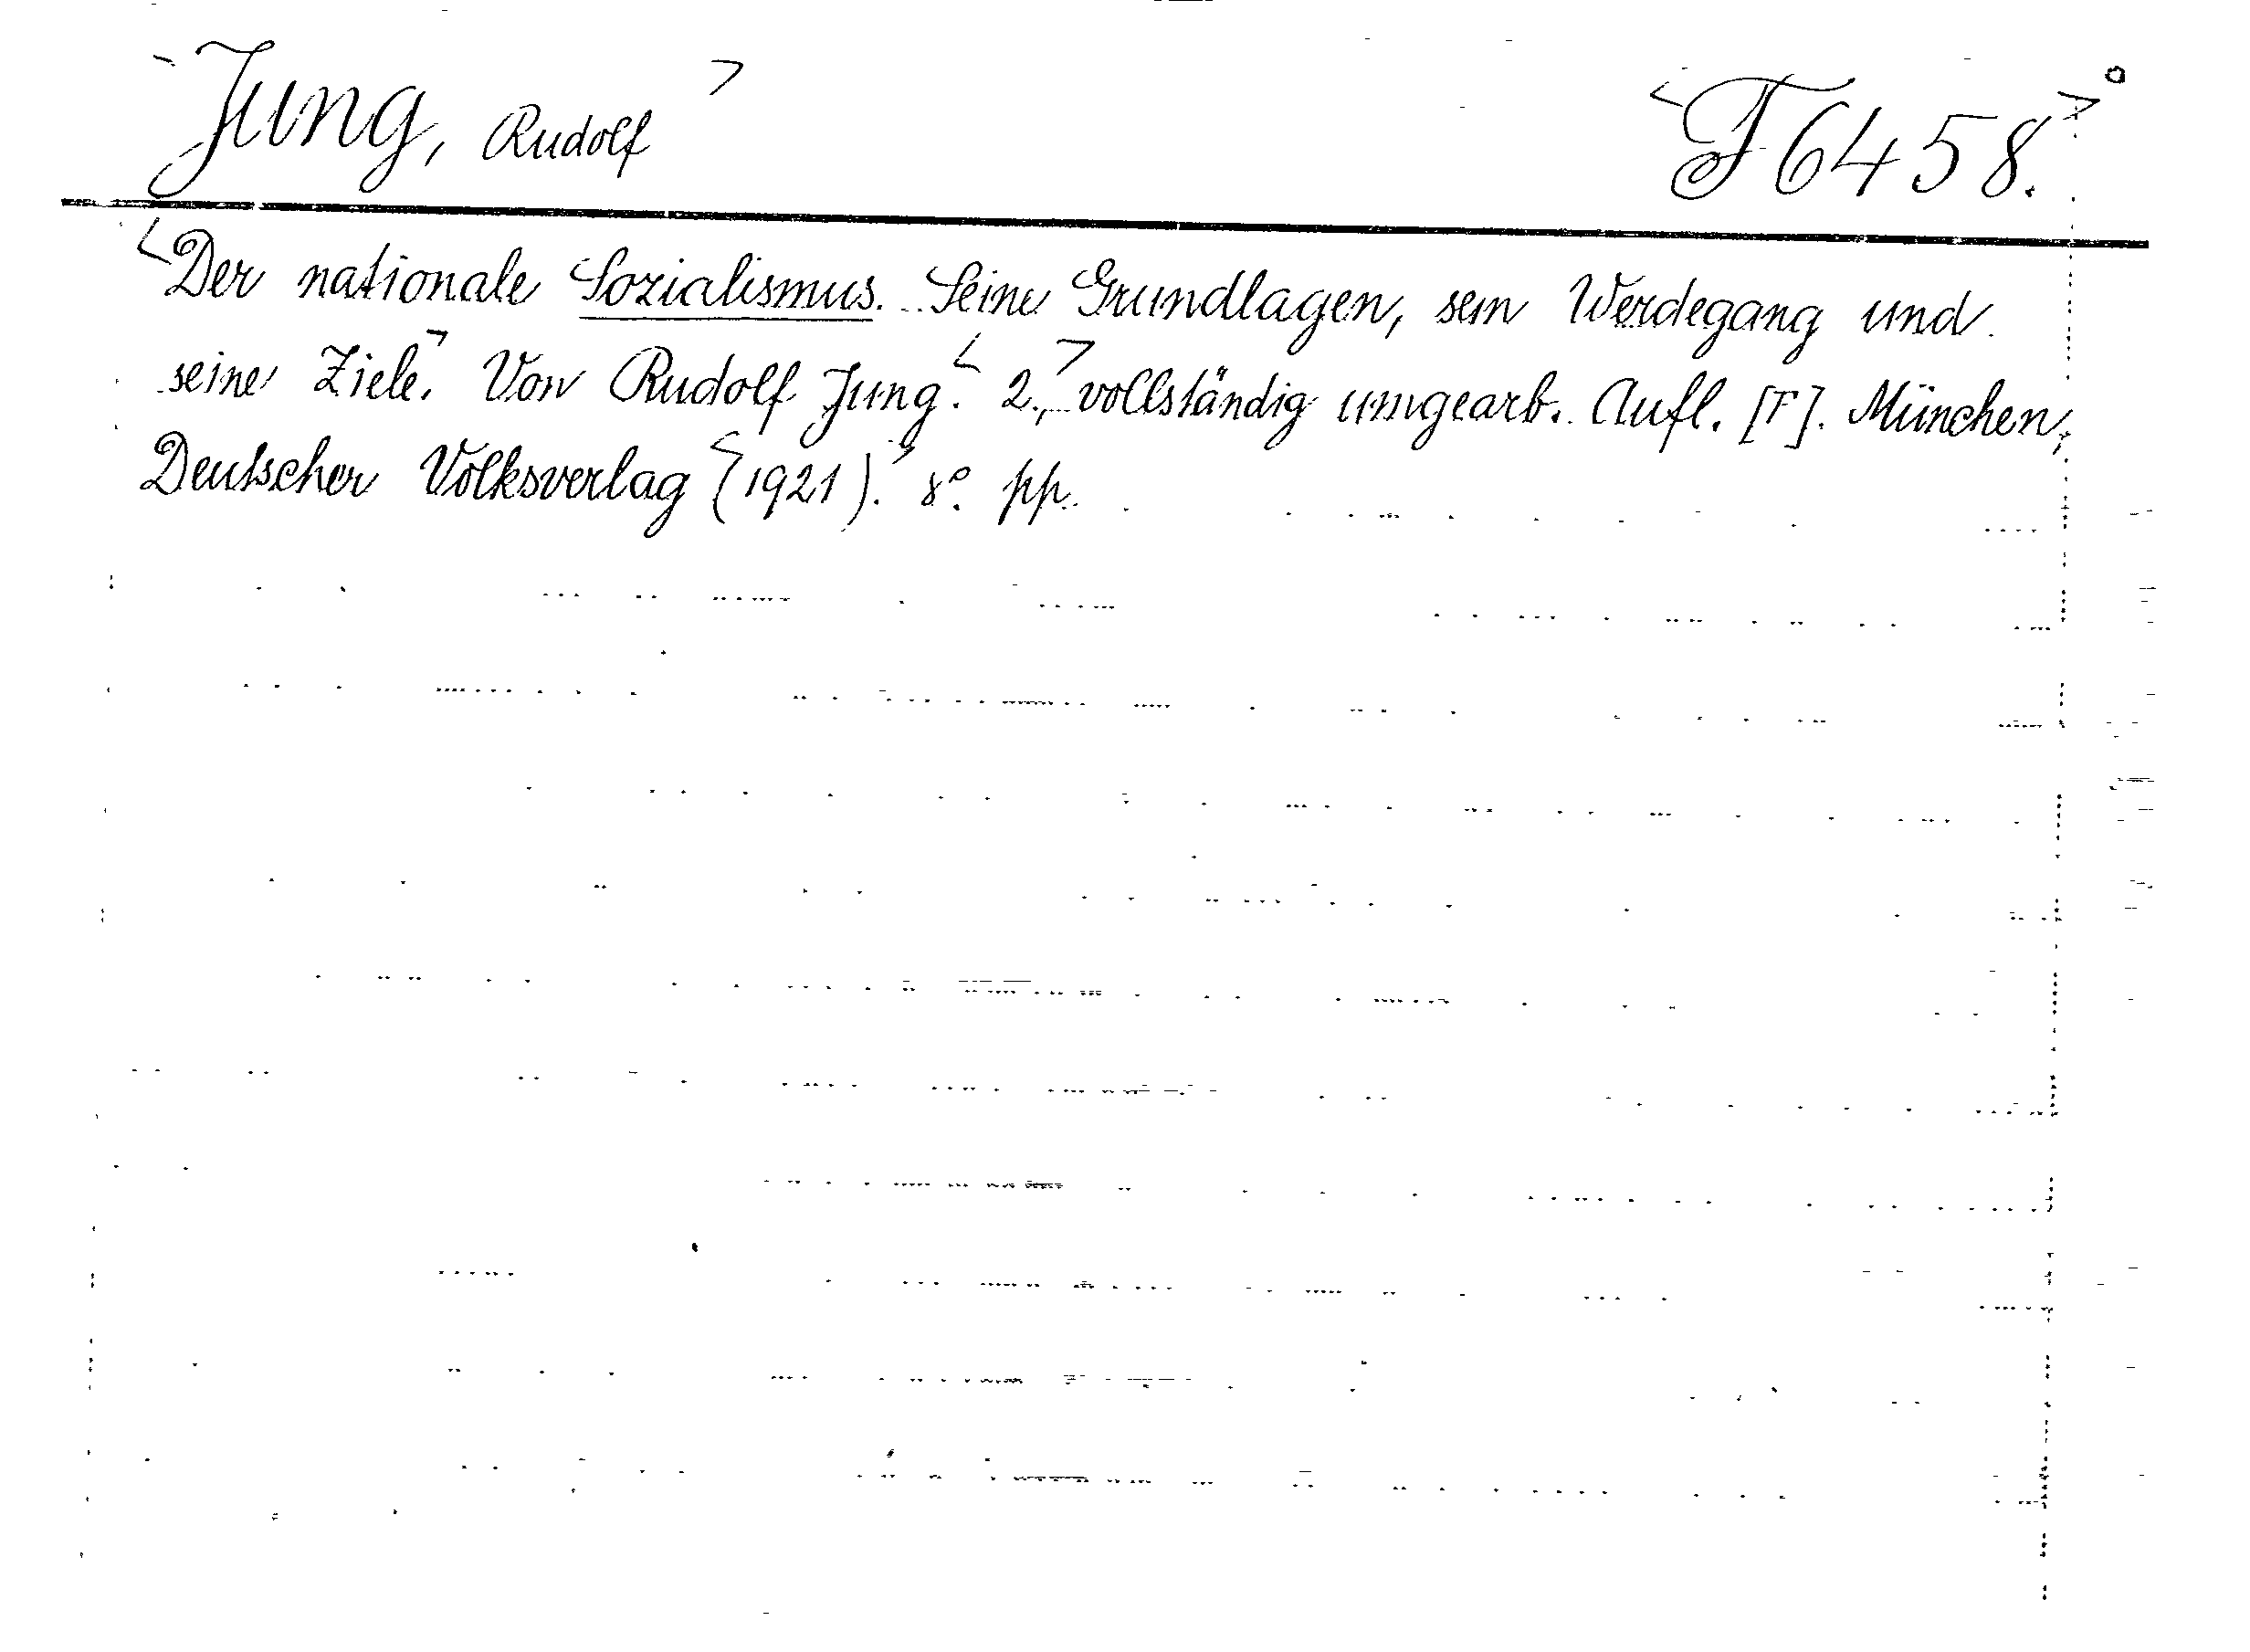 Jung, Rudolf
F 6458.
Der nationale Sozialismus. Seine Grundlagen, sein Werdegang und
seine Ziele. Von Rudolf Jung. 2., vollständig umgearb. Aufl. [F]. München,
Deutscher Volksverlag (1921). 8°. pp.